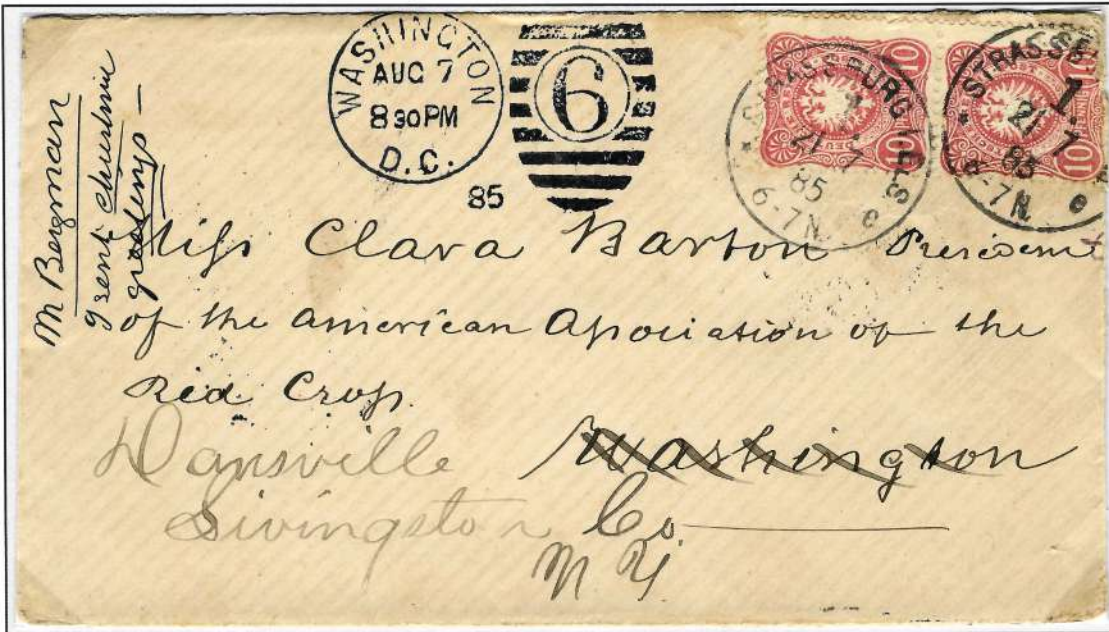 M Bergman
I sent christmas
greetings —
WASHINGTON
AUG 7
8 30 PM
D.C.
85
6
STRASSBURG i. ELS
1.
21 7
85
6-7N. e
10
STRASSB
1.
21 7
85
6-7N. e
10
10
Miss Clara Barton President
of the American Association of the
Red Cross.
Washington
Dansville
Livingston Co.
N Y.